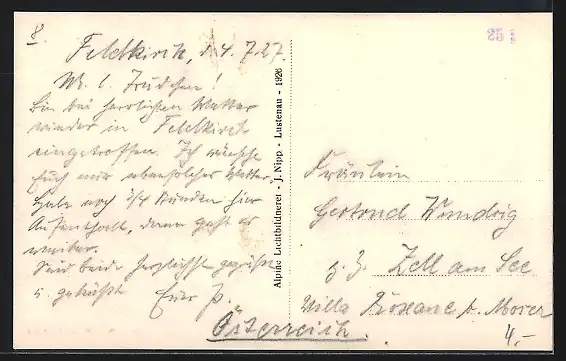 8.
Feldkirch, d. 4.7.27.
M. l. Trudchen!
Bin bei herrlichem Wetter
wieder in Feldkirch
eingetroffen. Ich wünsche
Euch nur ebensolches Wetter
Habe noch 3/4 Stunden hier
Aufenthalt, dann geht es
weiter.
Seid beide herzlichst gegrüßt
u. geküßt Euer P.
Alpine Lichtbildnerei - J. Nipp - Lustenau - 1926
25
Fräulein
Gertrud
z. Z. Zell am See
Villa Roxane b. Moser
Österreich.
4,-